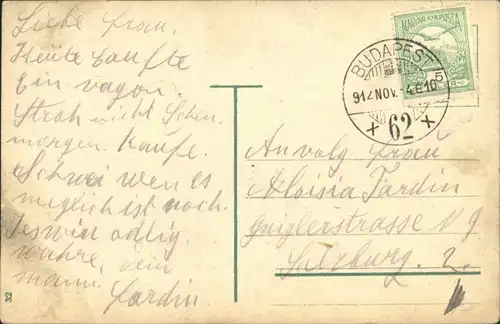 Liebe frau.
Heute kaufte
Ein vagon.
Stroh nicht Schen.
morgen. Kaufe.
Schwei wen es
meglich ist noch.
wahre, dein
mann. Jardin.
32
MAGYAR KIR. POSTA
BUDAPEST
5
912 NOV. -4.E 10
+ 62 +
An
frau
Aloisia Jardin
N 9
Salzburg. 2.